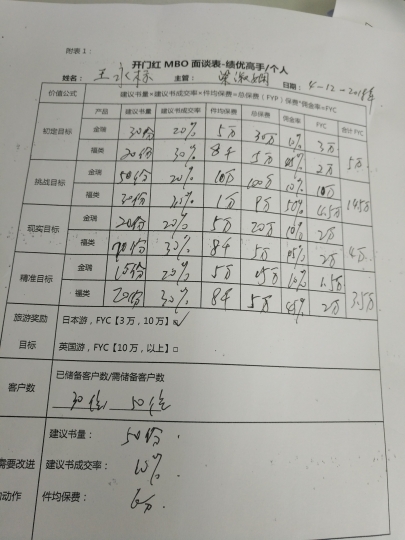 附表1：
开门红 MBO 面谈表-绩优高手/个人
姓名： 王永 主管： 梁淑娟 日期： 4-12-2018年
价值公式 建议书量×建议书成交率×件均保费=总保费（FYP）保费*佣金率=FYC
产品 建议书量 建议书成交率 件均保费 总保费 佣金率 FYC 合计FYC
初定目标 金瑞 30份 20% 5万 30万 10% 3万 5万
福类 20份 30% 8千 5万 45% 2万
挑战目标 金瑞 50份 20% 10万 100万 10% 10万 14.5万
福类 30份 30% 1万 9万 50% 4.5万
现实目标 金瑞 20份 20% 5万 20万 10% 2万 4万
福类 20份 30% 8千 5万 45% 2万
精准目标 金瑞 15份 20% 5万 15万 10% 1.5万 3.5万
福类 20份 30% 8千 5万 45% 2万
旅游奖励 日本游，FYC【3万，10万】□✓
目标 英国游，FYC【10万，以上】□
客户数 已储备客户数/需储备客户数
30位 50位
建议书量： 50份
需要改进 建议书成交率： 10%
的动作 件均保费： 6万